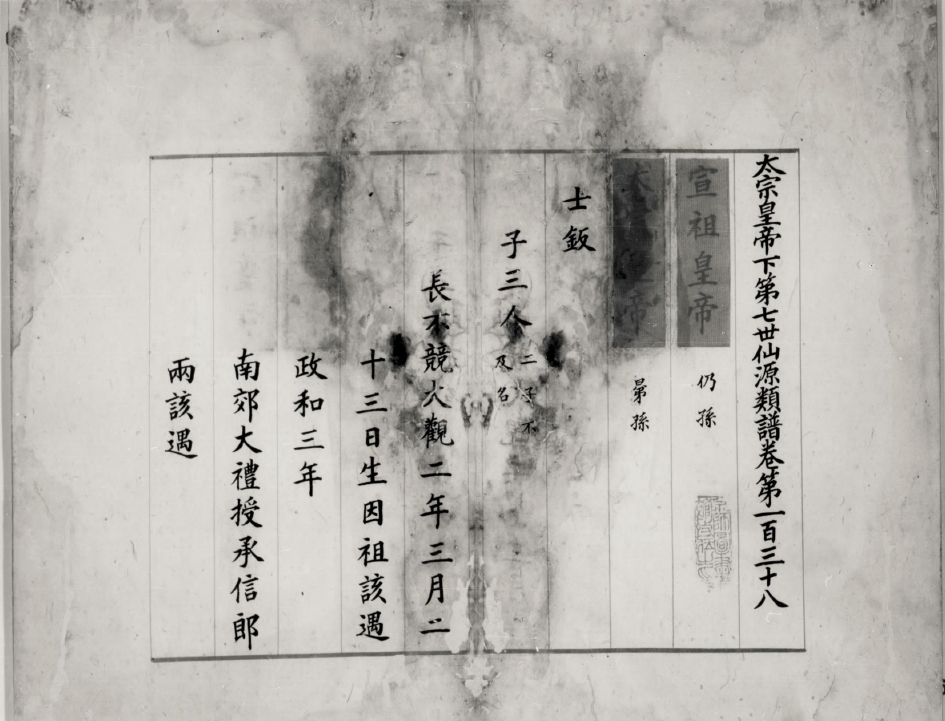 太宗皇帝下第七世仙源類譜卷第一百三十八
宣祖皇帝 仍孫
太宗皇帝 曩孫
士鈑
子三人 二子不及名
長不競大觀二年三月二
十三日生因祖該遇
政和三年
南郊大禮授承信郎
兩該遇